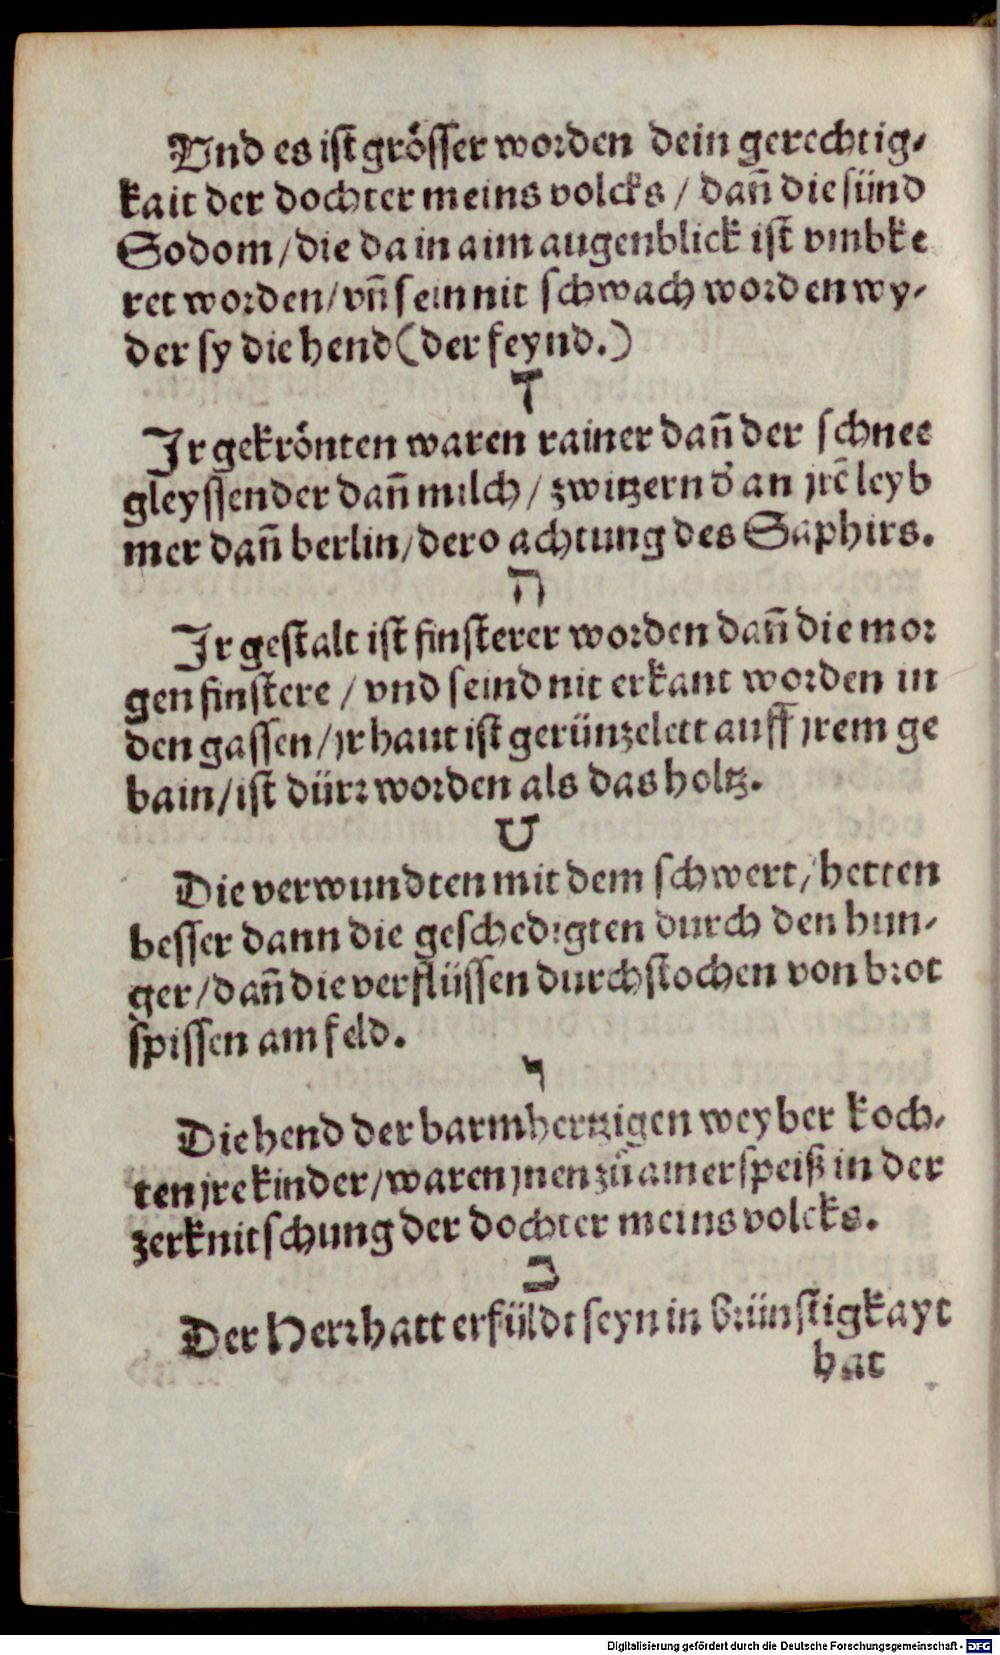 Vnd es ist grösser worden dein gerechtig⸗
kait der dochter meins volcks / dañ die sünd
Sodom / die da in aim augenblick ist vmbke
ret worden / vñ sein nit schwach worden wy⸗
der sy die hend (der feynd.)
ז
Jr gekrönten waren rainer dañ der schnee
gleyssender dañ milch / zwitzernd an jrẽ leyb
mer dañ berlin / dero achtung des Saphirs.
ח
Jr gestalt ist finsterer worden dañ die mor
gen finstere / vnd seind nit erkant worden in
den gassen / jr haut ist gerünzelett auff jrem ge
bain / ist dürr worden als das holtz.
ט
Die verwundten mit dem schwert / hetten
besser dann die geschedigten durch den hun⸗
ger / dañ die verflüssen durchstochen von brot
spissen am feld.
י
Die hend der barmhertzigen weyber koch⸗
ten jre kinder / waren jnen zů ainer speiß in der
zerknitschung der dochter meins volcks.
כ
Der Herr hatt erfüldt seyn in brünstigkayt
hat
Digitalisierung gefördert durch die Deutsche Forschungsgemeinschaft - DFG